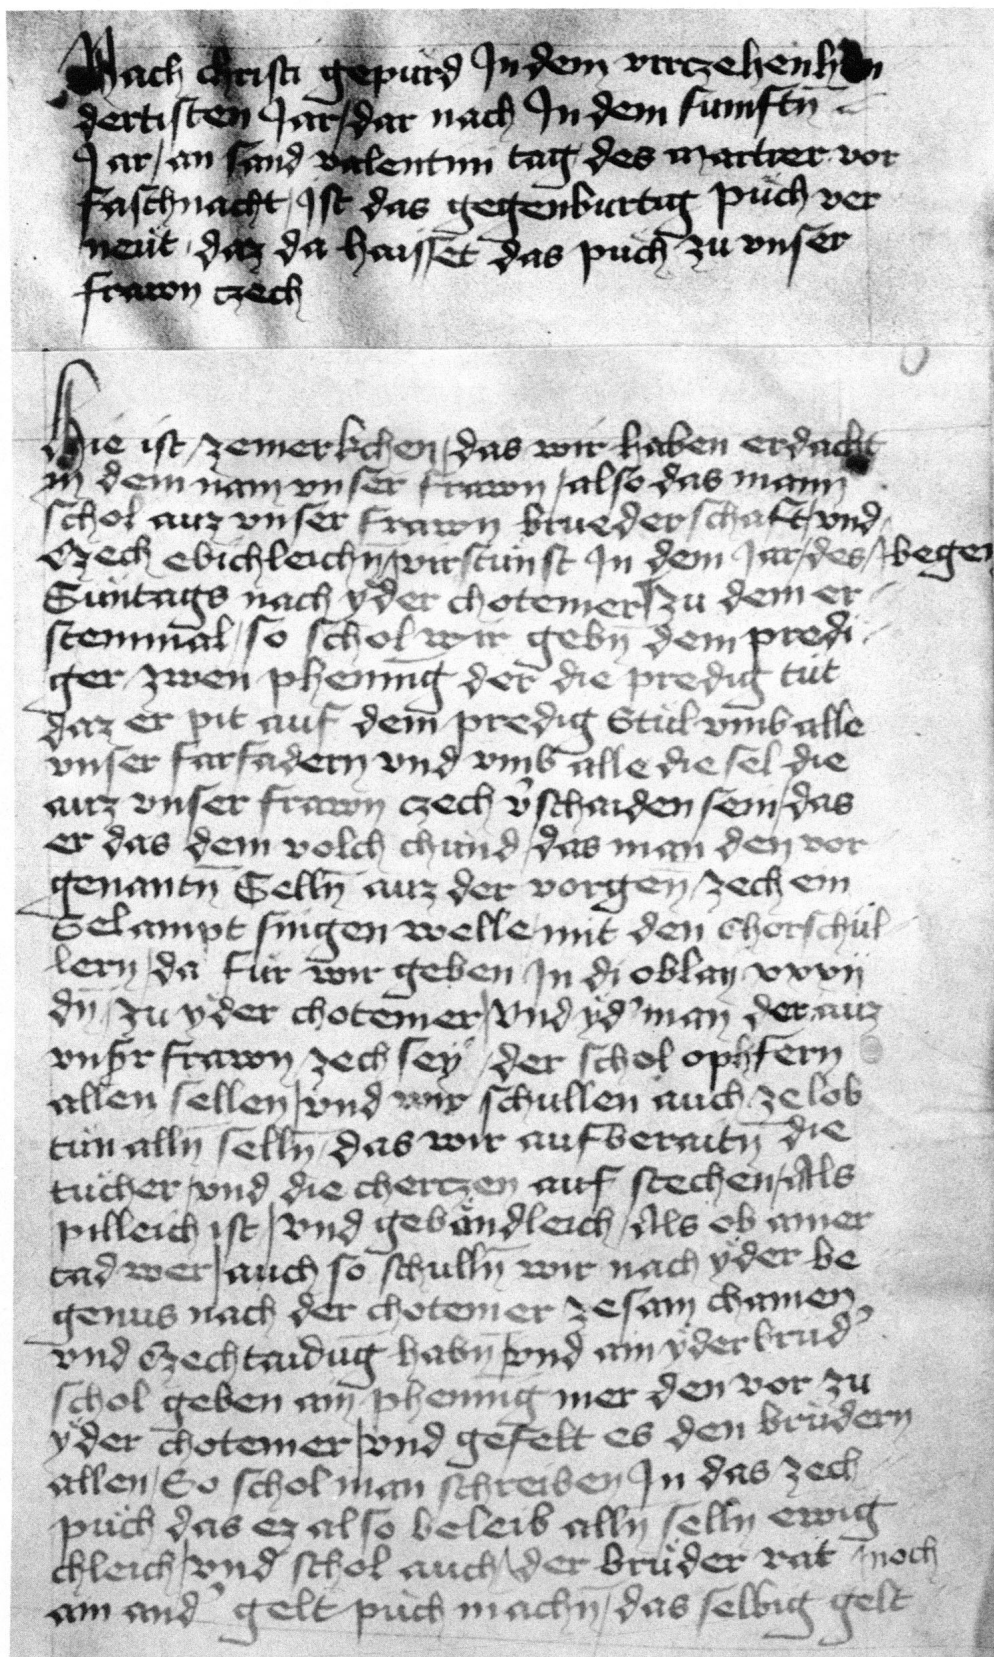 Nach christi gepurd Jn dem vierzehenhun
dertisten Jar / dar nach Jn dem fumftn̄
Jar / an sand valentini tag des martrer vor
faschnacht / Jst das gegenburtig puͤch ver
neut / daz da haisset das puch zu vnser
frawn czech
Hie ist / zemerkchen / das wir haben erdacht
in dem nam vnser frawn / also das mann
schol auz vnser frawn bruederschaft vnd
Czech ebichleichn̄ / virstunst Jn dem Jar / des / begen
Suntags nach yder chotemer / zu dem er
stenmal / so schol wir gebn̄ dem predi
ger / zwen phening der die predig tut
daz er pit auf dem predig Stul vmb alle
vnser farfadern vnd vmb alle die sel die
auz vnser frawn czech v̓schaiden sein / das
er das dem volch chund / das man den vor
genantn̄ Selln̄ auz der vorgen̄ / zech ein
Selampt singen welle / mit den Chorschul
lern / da fur wir geben Jn di oblay xxxij
dn̄ / zu yder chotemer / vnd yd̓ man der auz
vnsˀr frawn / zech sey / der schol opfern
allen sellen / vnd wir schullen auch / ze lob
tun alln̄ selln̄ / das wir aufberaitn̄ die
tucher / vnd die chertzen auf stechen / Als
pilleich ist / vnd gebandleich / Als ob ainer
tad wer / auch so schulln̄ wir nach yder be
genus nach der chotemer / zesam chamen
vnd Czechtaidūg habn̄ / vnd ain yder brud̓
schol geben ain phening mer den vor zu
yder chotemer / vnd gefelt es den brudern
allen / So schol man schreiben Jn das zech
puch das ez also beleib alln selln ewig
chleich / vnd schol auch / der bruder rat / noch
ain and̓ gelt puch machn̄ / das selbig gelt